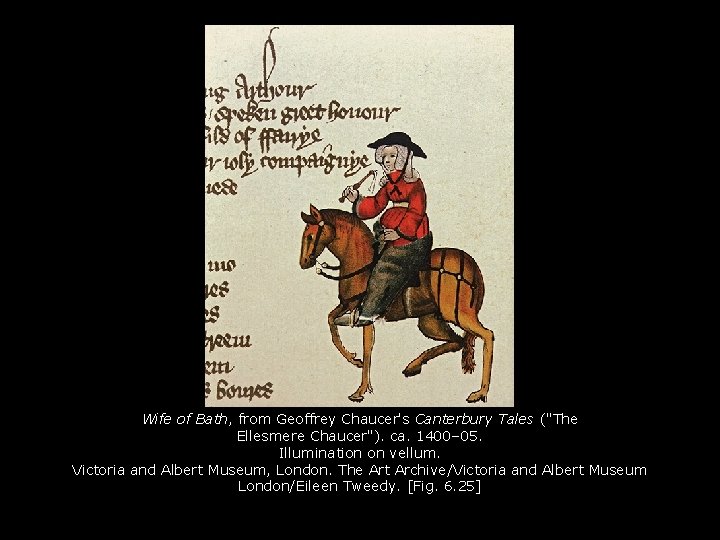 ng Arthour
spoken greet honour
ild of ffairye
r ioly compaignye
mede
mo
es
es
breem
em
s boures
Wife of Bath, from Geoffrey Chaucer's Canterbury Tales ("The
Ellesmere Chaucer"). ca. 1400–05.
Illumination on vellum.
Victoria and Albert Museum, London. The Art Archive/Victoria and Albert Museum
London/Eileen Tweedy. [Fig. 6.25]